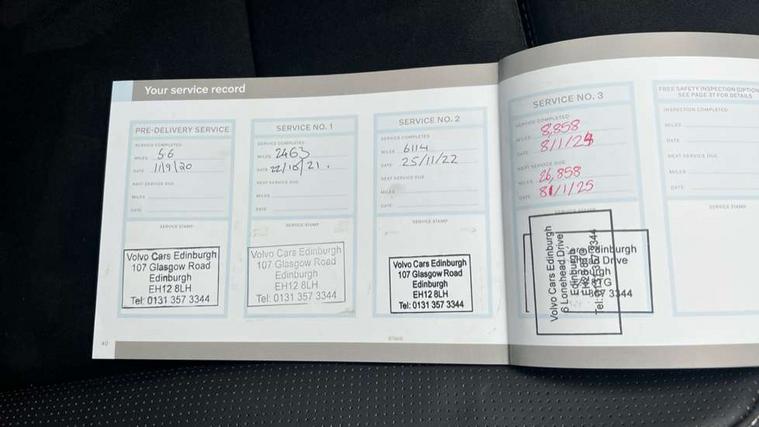 Your service record
PRE-DELIVERY SERVICE
SERVICE COMPLETED
MILES 56
DATE 11/9/20
NEXT SERVICE DUE
MILES
DATE
SERVICE STAMP
Volvo Cars Edinburgh
107 Glasgow Road
Edinburgh
EH12 8LH
Tel: 0131 357 3344
SERVICE NO. 1
SERVICE COMPLETED
MILES 2463
DATE 22/10/21.
NEXT SERVICE DUE
MILES
DATE
SERVICE STAMP
Volvo Cars Edinburgh
107 Glasgow Road
Edinburgh
EH12 8LH
Tel: 0131 357 3344
SERVICE NO. 2
SERVICE COMPLETED
MILES 6114
DATE 25/11/22
NEXT SERVICE DUE
MILES
DATE
SERVICE STAMP
Volvo Cars Edinburgh
107 Glasgow Road
Edinburgh
EH12 8LH
Tel: 0131 357 3344
SERVICE NO. 3
SERVICE COMPLETED
MILES 8,858
DATE 8/1/24
NEXT SERVICE DUE
MILES 26,858
DATE 8/1/25
Volvo Cars Edinburgh
6 Lonehead Drive
Edinburgh
3344
FREE SAFETY INSPECTION (OPTION
SEE PAGE 37 FOR DETAILS
INSPECTION COMPLETED
MILES
DATE
NEXT SERVICE DUE
MILES
DATE
SERVICE STAMP
40